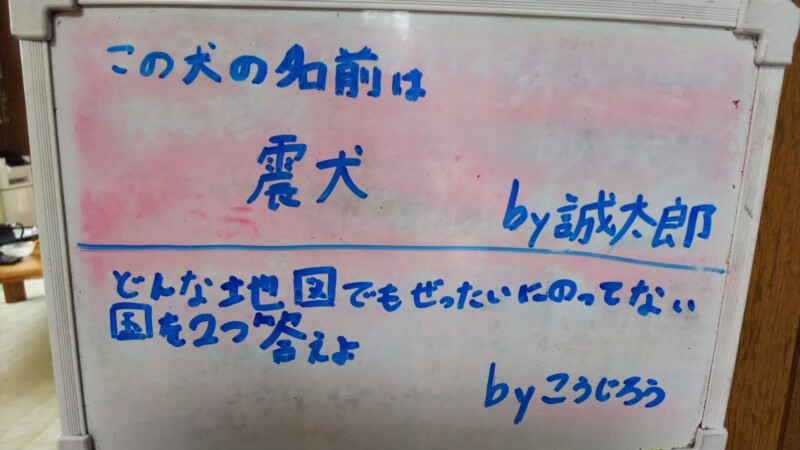 この犬の名前は
震犬
by誠太郎
どんな地図でもぜったいにのってない
国を2つ答えよ
byこうじろう